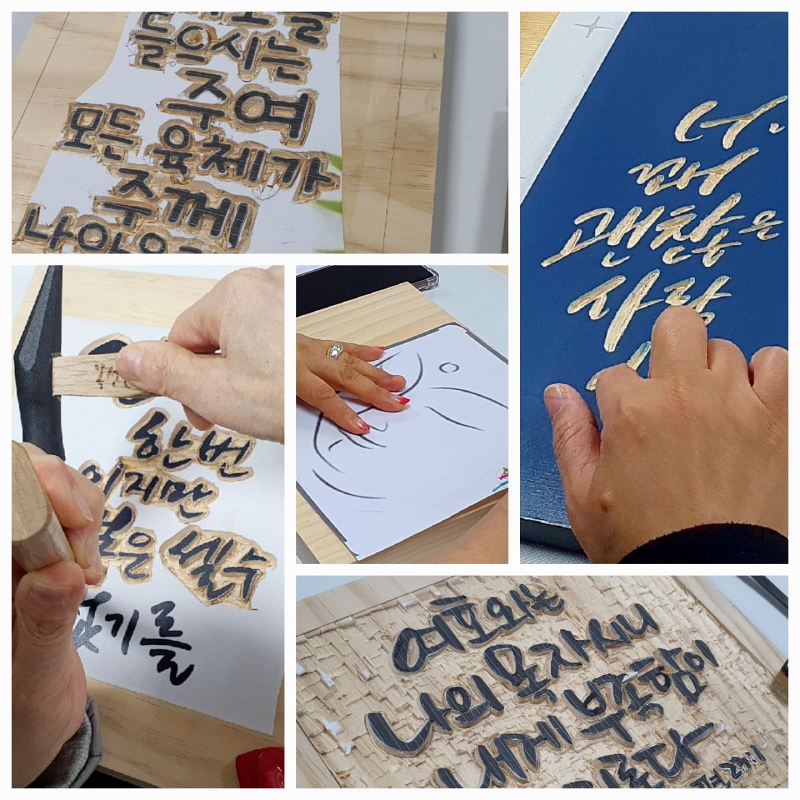 들으시는
주여
모든 육체가
주께
너.
꽤
괜찮은
사람
한번
이지만
은 낼수
기를
여호와는
나의 목자시니
내게 부족함이